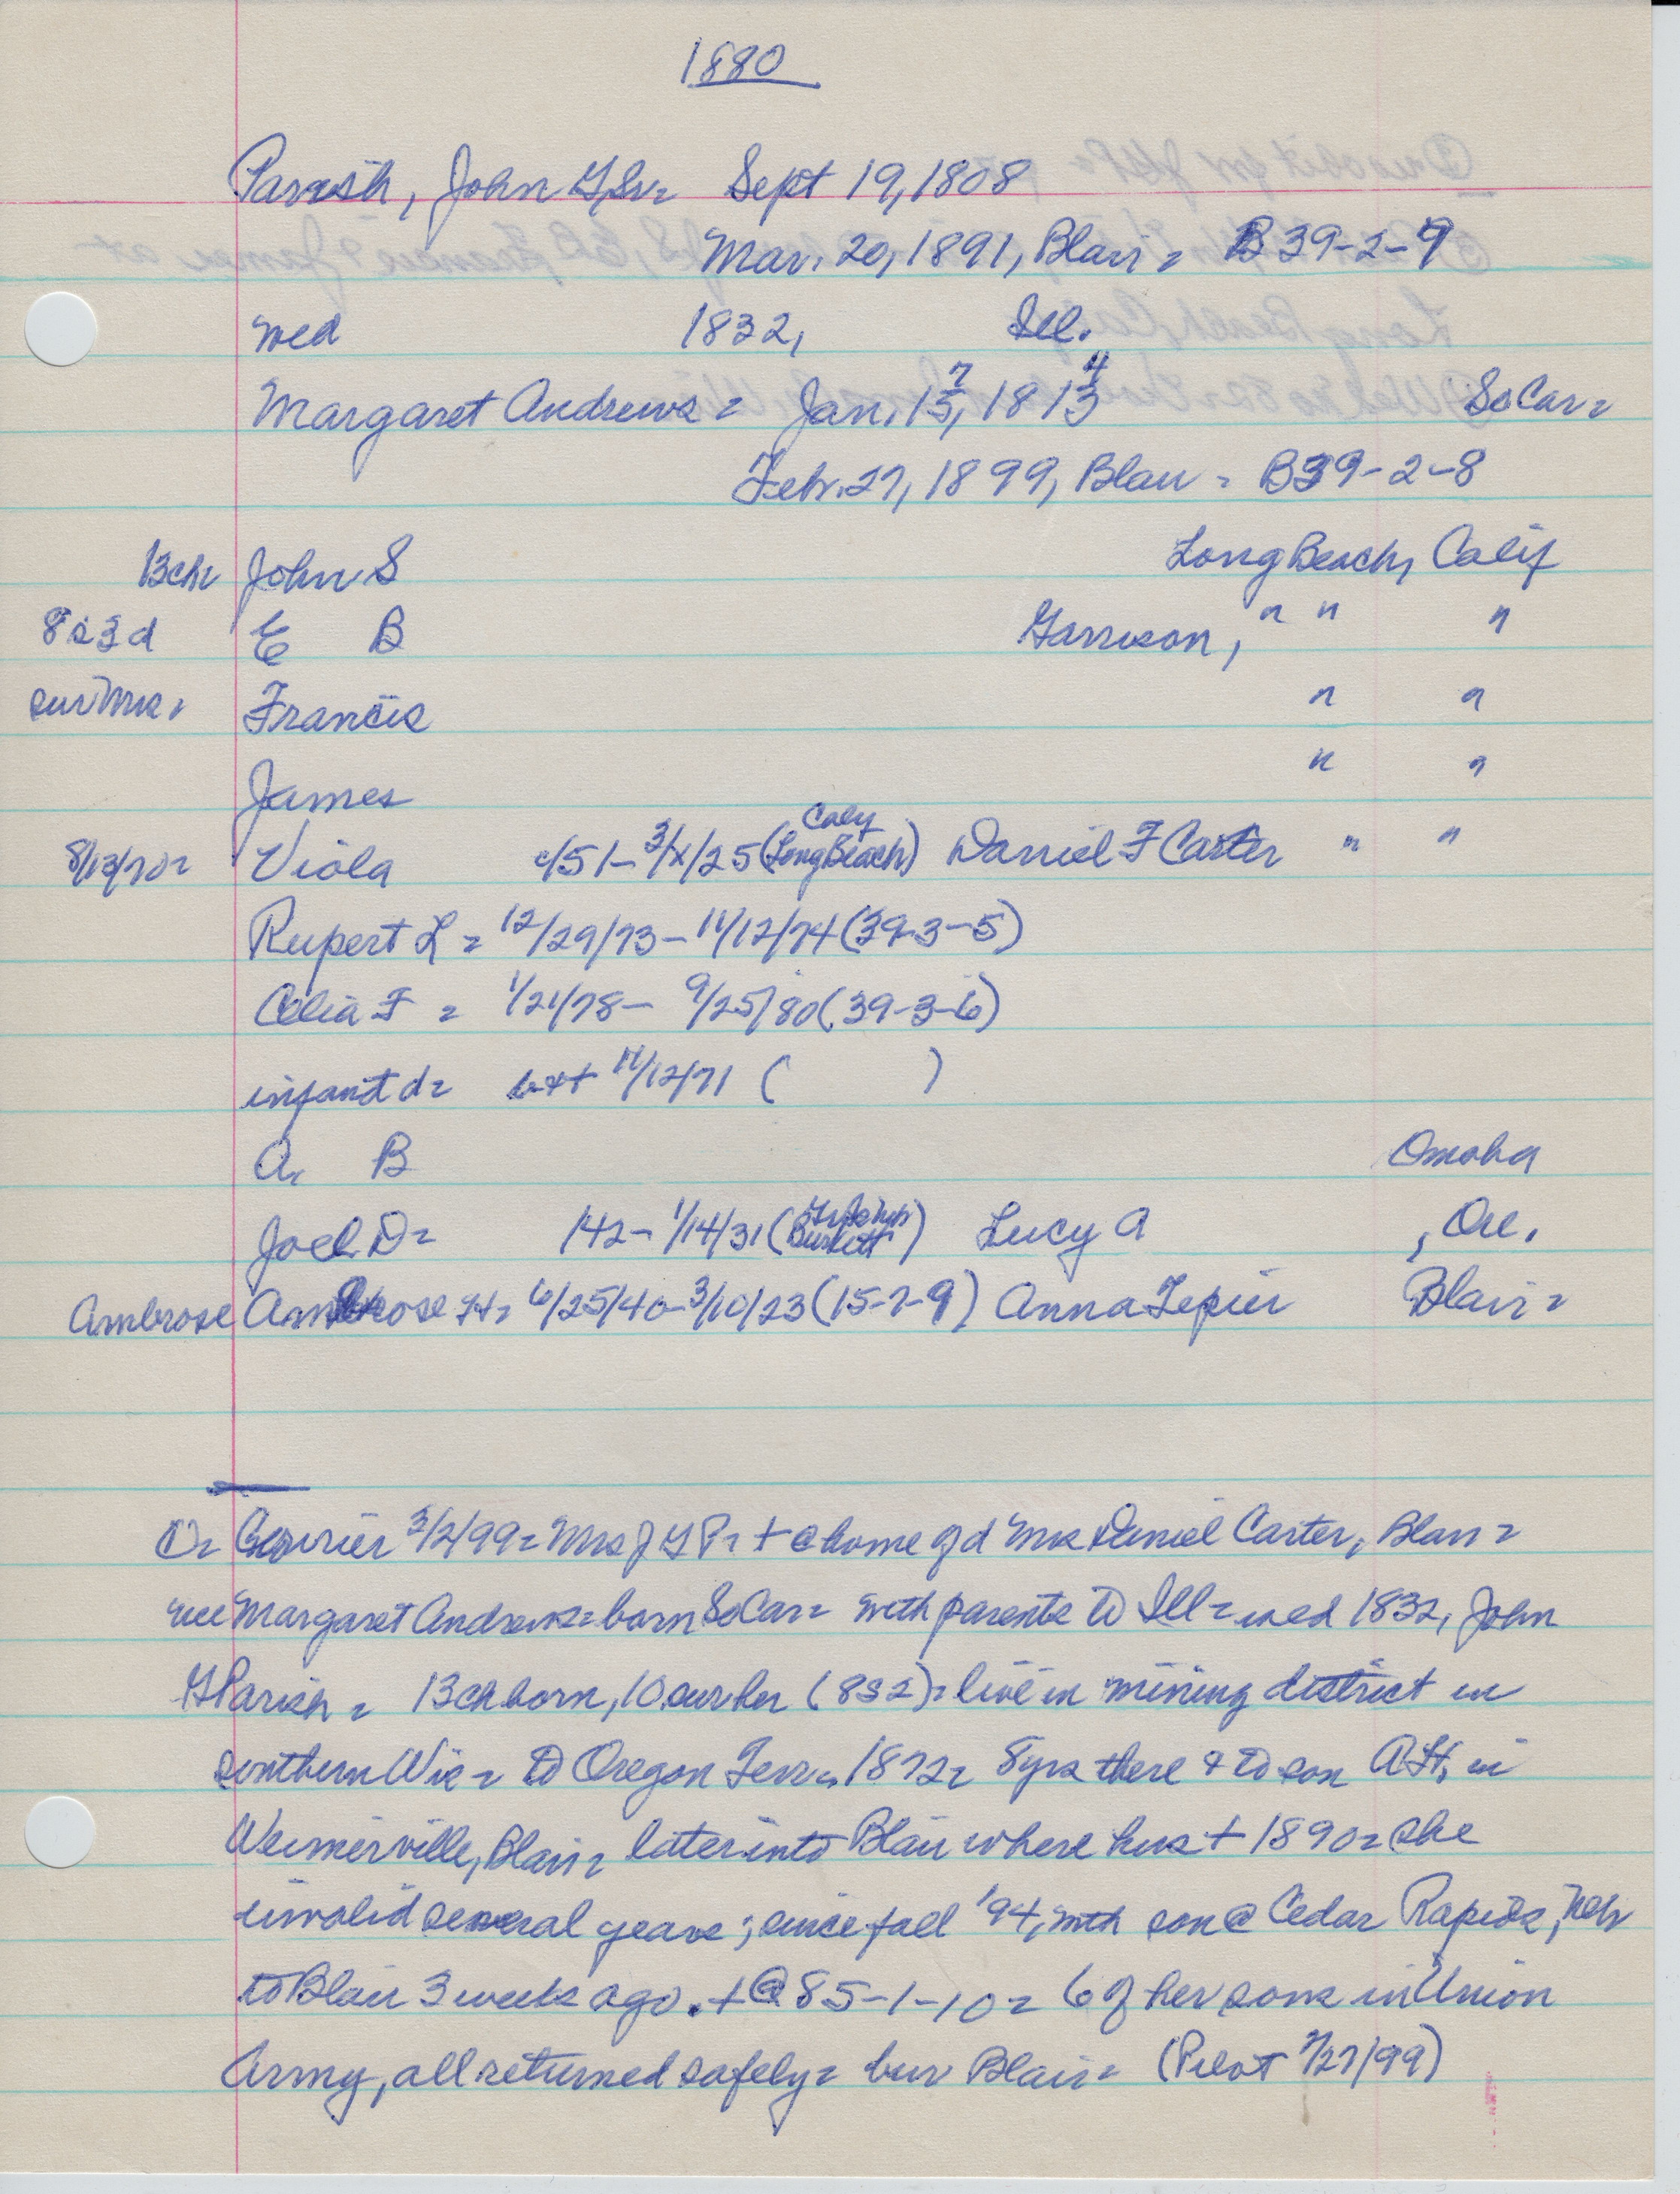 1880
Parish, John G, Sr = Sept 19, 1808
Mar. 20, 1891, Blair = B 39-2-9
wed 1832, Ill.
7 4
Margaret Andrews = Jan. 15, 1813 So Car =
Febr. 27, 1899, Blair = B39-2-8
13 ch = John S Long Beach, Calif
8 s 3 d E B Garrison, " " "
sur Mrs = Francis " "
James " "
Calif
8/13/70 = Viola c/51 - 3/x/25 (Long Beach) Daniel F Carter " "
Rupert L = 12/29/73 - 11/12/74 (39-3-5)
Celia F = 1/21/78 - 9/25/80 (39-3-6)
infant d = 11/12/71 ( )
A. B Omaha
Joel D = 142 - 1/14/31 (Burkett) Lucy A , Ore.
Ambrose Ambrose H = 6/25/40 - 3/10/23 (15-7-9) Anna Blair =
Courier 3/2/99 = Mrs J G P = + @ home of d Mrs Daniel Carter, Blair =
nee Margaret Andrews = born So Car = with parents to Ill = wed 1832, John
G Parish = 13 ch born, 10 sur her (8 s 2) = live in mining district in
southern Wis = to Oregon Terr = 1872 = 8 yrs there & to son A.H. in
Weimerville, Blair = later into Blair where hus + 1890 = she
invalid several years; since fall '94, with son @ Cedar Rapids, Neb
to Blair 3 weeks ago. + @ 85-1-10 = 6 of her sons in Union
Army, all returned safely = bur Blair = (Pilot 7/27/99)